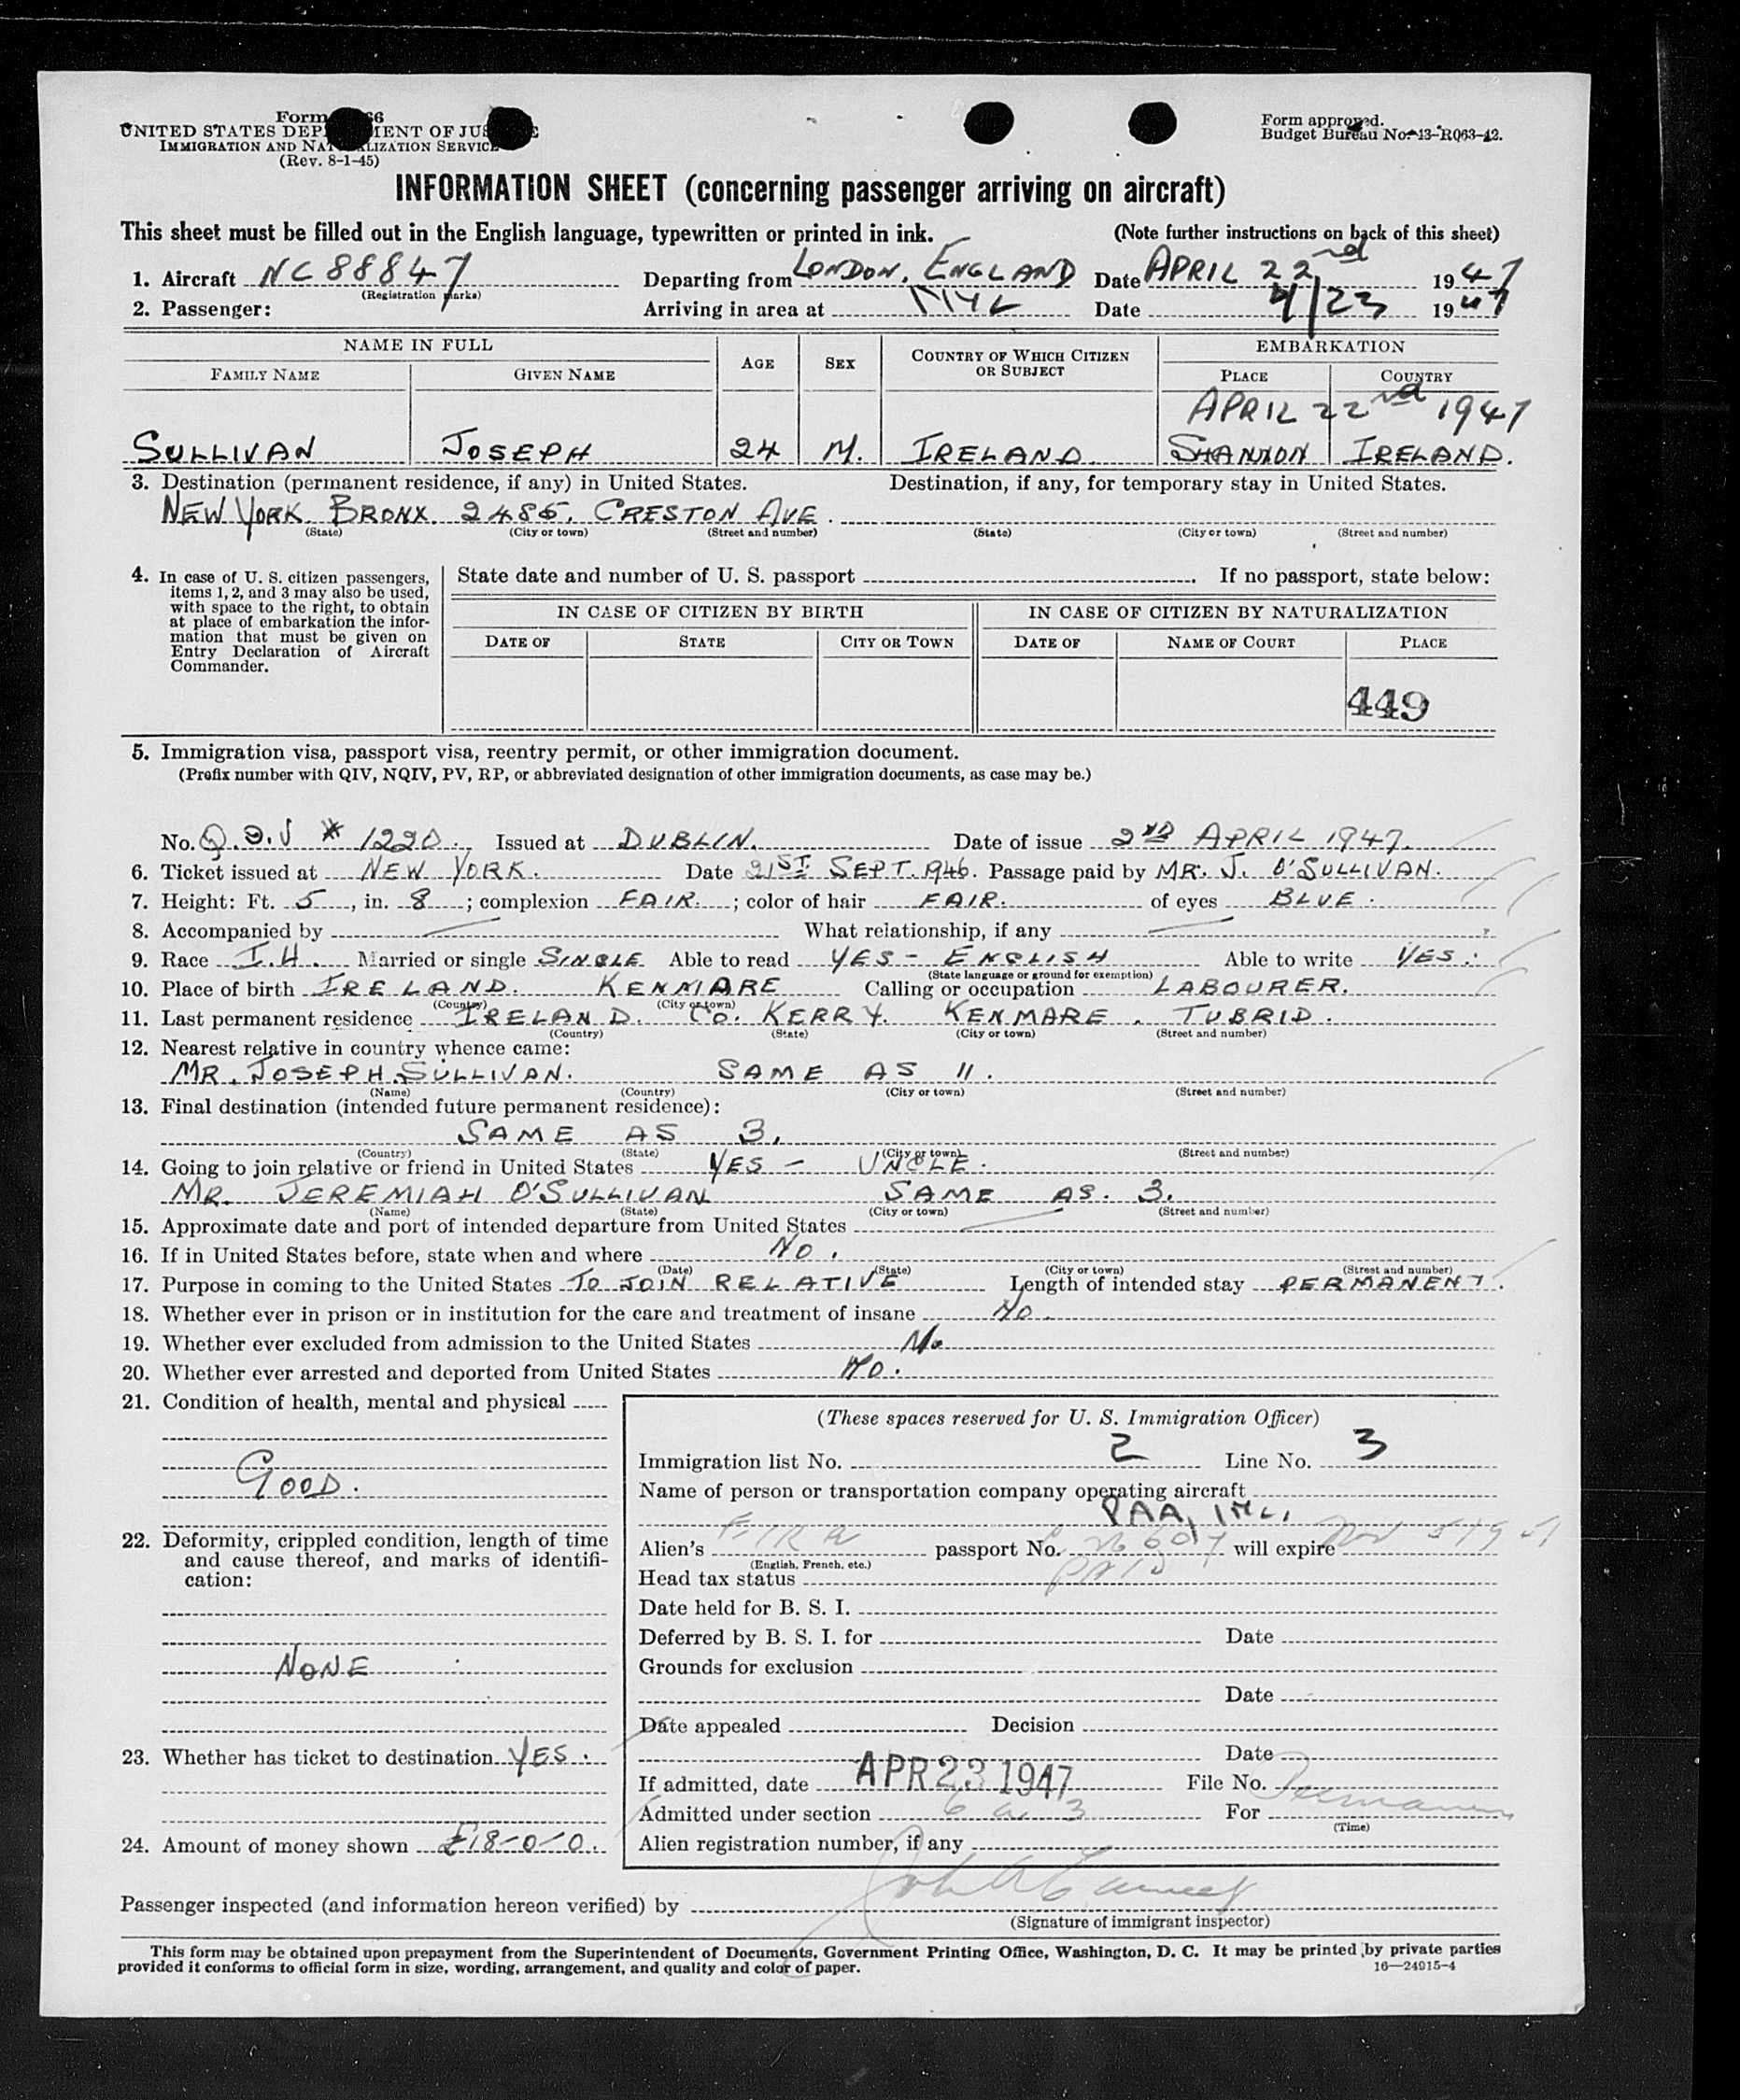 Form 66
UNITED STATES DEP MENT OF JUS E
IMMIGRATION AND NAT LIZATION SERVICE
(Rev. 8-1-45)
Form approved.
Budget Bureau No. 43-R063-42.
INFORMATION SHEET (concerning passenger arriving on aircraft)
This sheet must be filled out in the English language, typewritten or printed in ink. (Note further instructions on back of this sheet)
1. Aircraft NC 88847 Departing from LONDON, ENGLAND Date APRIL 22nd 1947
(Registration marks)
2. Passenger: Arriving in area at NYC Date 4/23 1947
NAME IN FULL AGE SEX COUNTRY OF WHICH CITIZEN OR SUBJECT EMBARKATION
FAMILY NAME GIVEN NAME PLACE COUNTRY
APRIL 22nd 1947
SULLIVAN JOSEPH 24 M. IRELAND SHANNON IRELAND.
3. Destination (permanent residence, if any) in United States. Destination, if any, for temporary stay in United States.
NEW YORK BRONX 2485, CRESTON AVE.
(State) (City or town) (Street and number) (State) (City or town) (Street and number)
4. In case of U. S. citizen passengers,
items 1, 2, and 3 may also be used,
with space to the right, to obtain
at place of embarkation the infor-
mation that must be given on
Entry Declaration of Aircraft
Commander.
State date and number of U. S. passport . If no passport, state below:
IN CASE OF CITIZEN BY BIRTH IN CASE OF CITIZEN BY NATURALIZATION
DATE OF STATE CITY OR TOWN DATE OF NAME OF COURT PLACE
449
5. Immigration visa, passport visa, reentry permit, or other immigration document.
(Prefix number with QIV, NQIV, PV, RP, or abbreviated designation of other immigration documents, as case may be.)
No. 1220. Issued at DUBLIN. Date of issue 2ND APRIL 1947.
6. Ticket issued at NEW YORK. Date 21ST SEPT. 1946. Passage paid by MR. J. O'SULLIVAN.
7. Height: Ft. 5, in. 8; complexion FAIR.; color of hair FAIR. of eyes BLUE.
8. Accompanied by — What relationship, if any —
9. Race I.H. Married or single SINGLE Able to read YES - ENGLISH Able to write YES.
(State language or ground for exemption)
10. Place of birth IRELAND. KENMARE Calling or occupation LABOURER.
(Country) (City or town)
11. Last permanent residence IRELAND. CO. KERRY. KENMARE. TUBRID.
(Country) (State) (City or town) (Street and number)
12. Nearest relative in country whence came:
MR. JOSEPH SULLIVAN. SAME AS 11.
(Name) (Country) (City or town) (Street and number)
13. Final destination (intended future permanent residence):
SAME AS 3.
(Country) (State) (City or town) (Street and number)
14. Going to join relative or friend in United States YES - UNCLE.
MR. JEREMIAH O'SULLIVAN SAME AS. 3.
(Name) (State) (City or town) (Street and number)
15. Approximate date and port of intended departure from United States —
16. If in United States before, state when and where NO.
(Date) (State) (City or town) (Street and number)
17. Purpose in coming to the United States TO JOIN RELATIVE Length of intended stay PERMANENT.
18. Whether ever in prison or in institution for the care and treatment of insane NO.
19. Whether ever excluded from admission to the United States No
20. Whether ever arrested and deported from United States NO.
21. Condition of health, mental and physical
GOOD.
22. Deformity, crippled condition, length of time
and cause thereof, and marks of identifi-
cation:
NONE
23. Whether has ticket to destination YES.
24. Amount of money shown £18-0-0.
(These spaces reserved for U. S. Immigration Officer)
Immigration list No. 2 Line No. 3
Name of person or transportation company operating aircraft
PAA, INC.
Alien's passport No. will expire
(English, French, etc.)
Head tax status PAID
Date held for B. S. I.
Deferred by B. S. I. for Date
Grounds for exclusion
Date
Date appealed Decision
Date
If admitted, date APR 23 1947 File No.
Admitted under section 6 a 3 For Permanent
(Time)
Alien registration number, if any
Passenger inspected (and information hereon verified) by
(Signature of immigrant inspector)
This form may be obtained upon prepayment from the Superintendent of Documents, Government Printing Office, Washington, D. C. It may be printed by private parties
provided it conforms to official form in size, wording, arrangement, and quality and color of paper. 16—24915-4